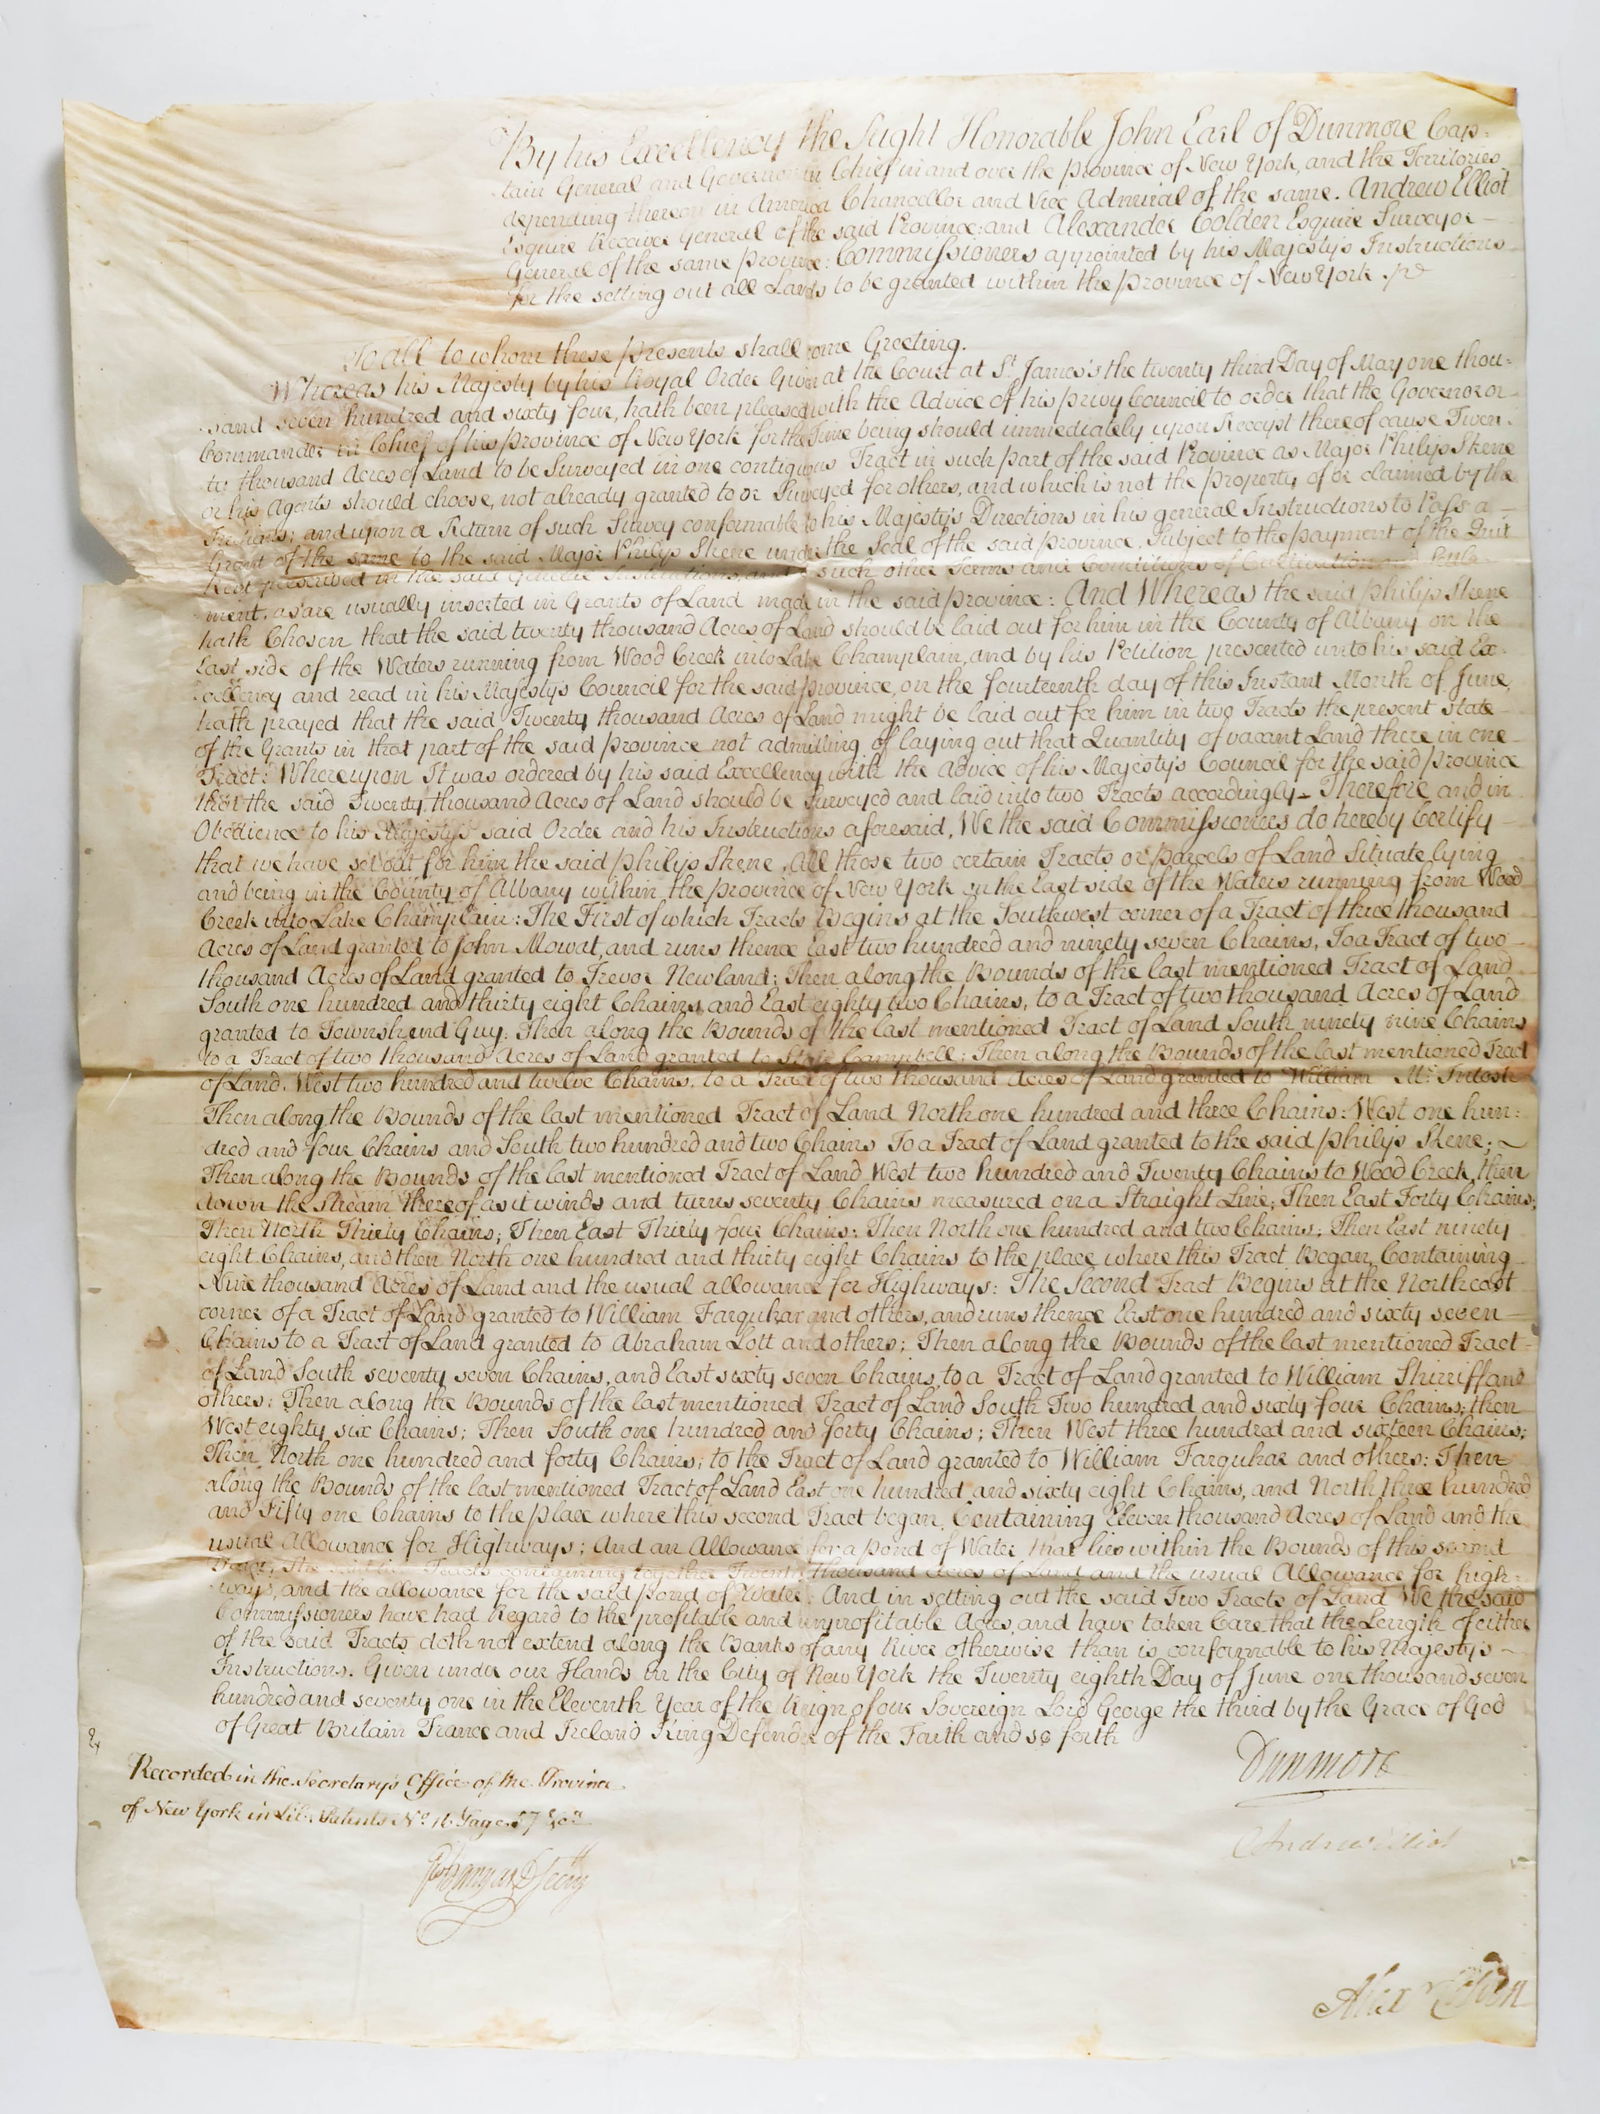 By his Excellency the Right Honorable John Earl of Dunmore Cap-
tain General and Governor in Chief in and over the Province of New York, and the Territories
depending thereon in America Chancellor and Vice Admiral of the same. Andrew Elliot
Esquire Receiver General of the said Province: and Alexander Colden Esquire Surveyor
General of the same Province: Commissioners appointed by his Majesty's Instructions
for the setting out all Lands to be granted within the Province of New York
To all to whom these Presents shall come Greeting.
Whereas his Majesty by his Royal Order Given at the Court at St. James's the twenty third Day of May one thou-
sand seven hundred and sixty four, hath been pleased with the Advice of his privy Council to order that the Governor or
Commander in Chief of his Province of New York for the Time being should immediately upon Receipt thereof cause Twen-
ty thousand Acres of Land to be Surveyed in one contiguous Tract in such part of the said Province as Major Philip Skene
or his Agents should choose, not already granted to or Surveyed for others, and which is not the property of or claimed by the
Indians; and upon a Return of such Survey conformable to his Majesty's Directions in his general Instructions to Pass a
Grant of the same to the said Major Philip Skene under the Seal of the said Province, Subject to the payment of the Quit
Rent prescribed in the said General Instructions, and such other Terms and Conditions of Cultivation and Settle-
ment, as are usually inserted in Grants of Land made in the said Province: And Whereas the said Philip Skene
hath Chosen that the said twenty thousand Acres of Land should be laid out for him in the County of Albany on the
East side of the Waters running from Wood Creek into Lake Champlain, and by his Petition presented unto his said Ex-
cellency and read in his Majesty's Council for the said Province, on the fourteenth day of this Instant Month of June,
hath prayed that the said Twenty thousand Acres of Land might be laid out for him in two Tracts the present state
of the Grants in that part of the said Province not admitting of laying out that Quantity of vacant Land there in one
Tract: Whereupon It was ordered by his said Excellency with the Advice of his Majesty's Council for the said Province
that the said Twenty thousand Acres of Land should be Surveyed and laid into two Tracts accordingly. Therefore and in
Obedience to his Majesty's said Order and his Instructions aforesaid, We the said Commissioners do hereby Certify
that we have set out for him the said Philip Skene, All those two certain Tracts or Parcels of Land Situate lying
and being in the County of Albany within the Province of New York on the East side of the Waters running from Wood
Creek into Lake Champlain: The First of which Tracts Begins at the Southwest corner of a Tract of three thousand
Acres of Land granted to John Mowat, and runs thence East two hundred and ninety seven Chains, To a Tract of two
thousand Acres of Land granted to Trevor Newland; Then along the Bounds of the last mentioned Tract of Land
South one hundred and thirty eight Chains, and East eighty two Chains, to a Tract of two thousand Acres of Land
granted to Townshend Guy. Then along the Bounds of the last mentioned Tract of Land South ninety nine Chains
to a Tract of two thousand Acres of Land granted to Campbell; Then along the Bounds of the last mentioned Tract
of Land, West two hundred and twelve Chains, to a Tract of two thousand Acres of Land granted to William McIntosh
Then along the Bounds of the last mentioned Tract of Land North one hundred and three Chains: West one hun-
dred and four Chains and South two hundred and two Chains To a Tract of Land granted to the said Philip Skene;
Then along the Bounds of the last mentioned Tract of Land West two hundred and Twenty Chains to Wood Creek, then
down the Stream thereof as it winds and turns seventy Chains measured on a Straight Line; Then East Forty Chains;
Then North Thirty Chains; Then East Thirty four Chains; Then North one hundred and two Chains; Then East ninety
eight Chains, and then North one hundred and thirty eight Chains to the place where this Tract Began, Containing
Nine thousand Acres of Land and the usual allowance for Highways: The Second Tract Begins at the Northeast
corner of a Tract of Land granted to William Farquhar and others, and runs thence East one hundred and sixty seven
Chains to a Tract of Land granted to Abraham Lott and others; Then along the Bounds of the last mentioned Tract
of Land South seventy seven Chains, and East sixty seven Chains, to a Tract of Land granted to William Shirriff and
others; Then along the Bounds of the last mentioned Tract of Land South Two hundred and sixty four Chains; then
West eighty six Chains; Then South one hundred and forty Chains; Then West three hundred and sixteen Chains;
Then North one hundred and forty Chains; to the Tract of Land granted to William Farquhar and others: Then
along the Bounds of the last mentioned Tract of Land East one hundred and sixty eight Chains, and North three hundred
and Fifty one Chains to the place where this second Tract began, Containing Eleven thousand Acres of Land and the
usual Allowance for Highways; And an Allowance for a pond of Water that lies within the Bounds of this second
Tract, The said two Tracts containing together Twenty thousand Acres of Land and the usual Allowance for high-
ways, and the allowance for the said pond of Water: And in setting out the said Two Tracts of Land We the said
Commissioners have had Regard to the profitable and unprofitable Acres, and have taken Care that the Length of either
of the said Tracts doth not extend along the Banks of any River otherwise than is conformable to his Majesty's
Instructions. Given under our Hands in the City of New York the Twenty eighth Day of June one thousand seven
hundred and seventy one in the Eleventh Year of the Reign of our Sovereign Lord George the third by the Grace of God
of Great Britain France and Ireland King Defender of the Faith and so forth
Dunmore
Recorded in the Secretary's Office of the Province
of New York in Lib. Patents No. 16 Page
Andrew Elliot
Alexr Colden